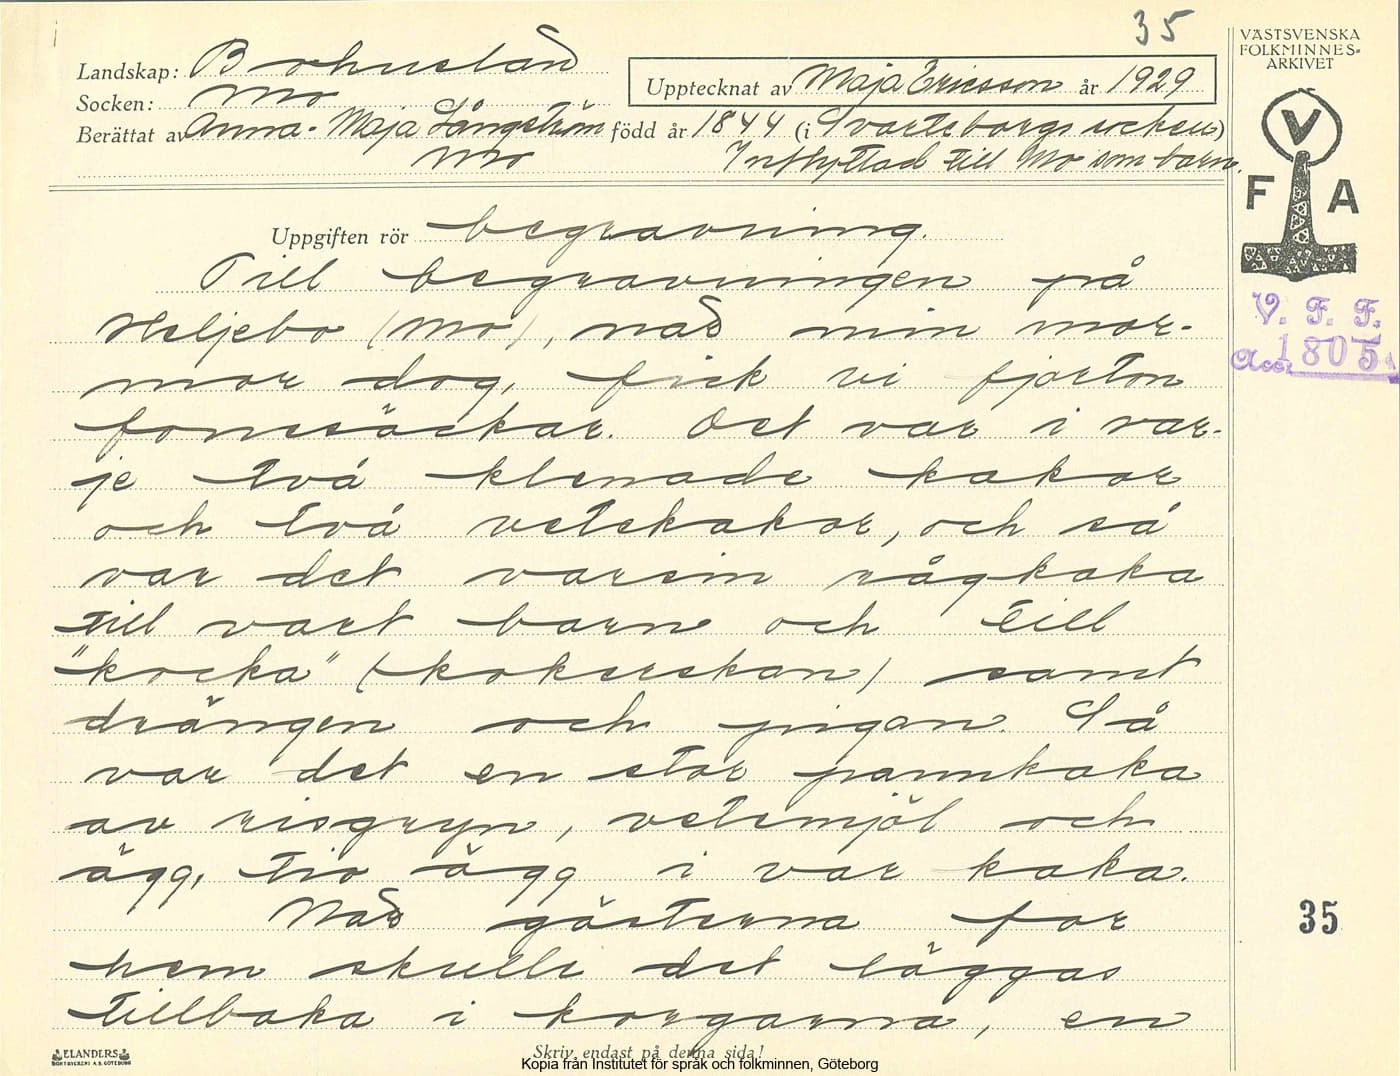 35
VÄSTSVENSKA
FOLKMINNES-
ARKIVET
Landskap: Bohuslän
Upptecknat av Maja Ericsson år 1929
Socken: Mo
Berättat av Anna-Maja Långström född år 1844 (i Svarteborgs socken)
Mo Inflyttad till Mo som barn.
V
F A
Uppgiften rör begravning.
Till begravningen på
Heljebo (Mo), när min mor-
mor dog, fick vi fjorton
fornesäckar. Det var i var-
je två klenade kakor
och två vetekakor, och så
var det varsin rågkaka
till vart barn och till
"kocka" (kokerskan) samt
drängen och pigan. Så
var det en stor pannkaka
av risgryn, vetemjöl och
ägg, tio ägg i var kaka.
När gästerna for
hem skulle det läggas
tillbaka i korgarna, en
V. F. F.
Acc. 1805
35
ELANDERS
BOKTRYCKERI A.B. GÖTEBORG
Skriv endast på denna sida!
Kopia från Institutet för språk och folkminnen, Göteborg